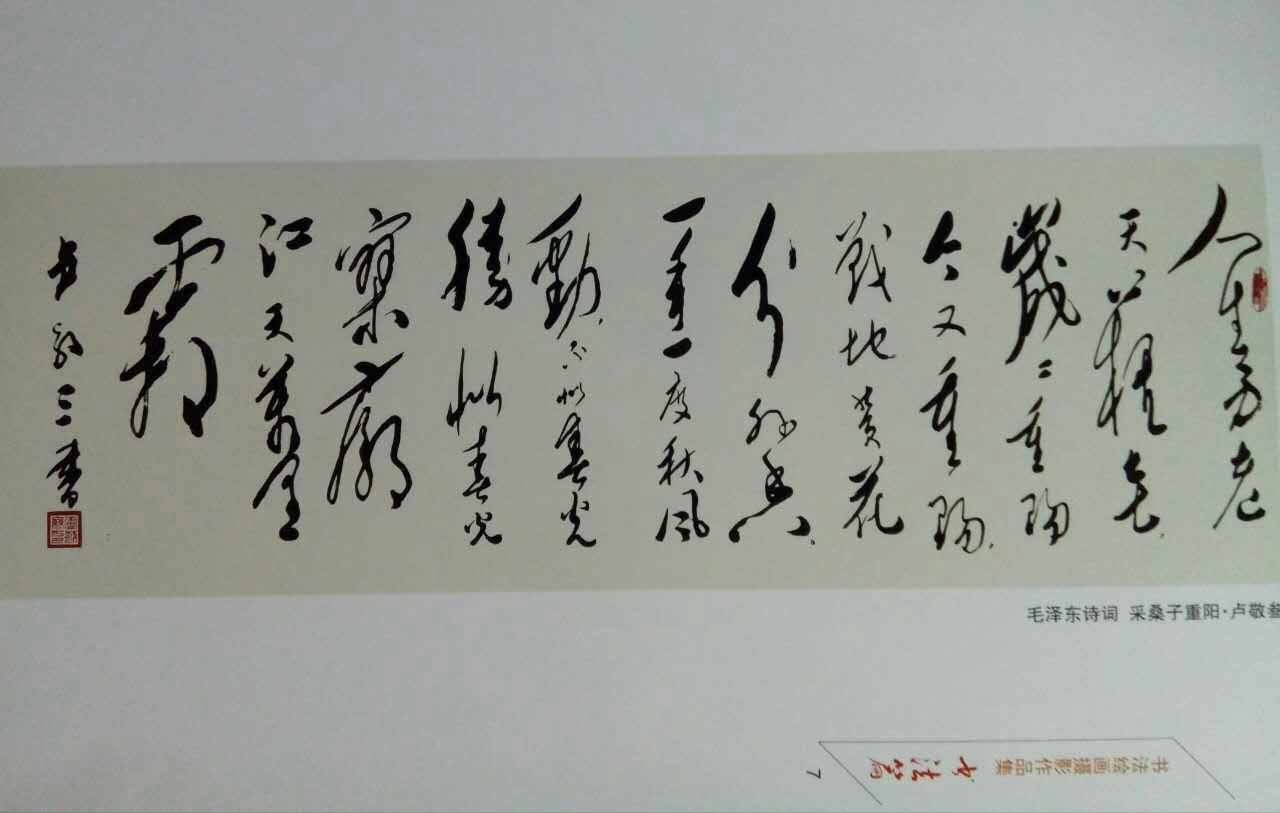 人生易老
天難老
歲々重陽
今又重陽
戰地黃花
分外香
一年一度秋風
勁不似春光
勝似春光
寥廓
江天萬里
霜
卢敬三書
毛泽东诗词 采桑子重阳·卢敬叁
书法绘画摄影作品集 书法篇
7